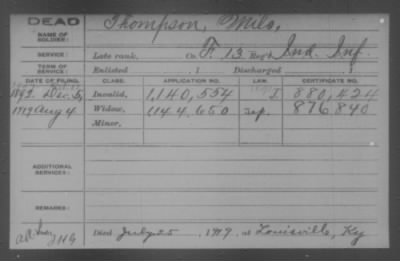 DEAD
NAME OF SOLDIER: Thompson, Milo,
SERVICE: Late rank, Co. F, 13 Reg't Ind. Inf.
TERM OF SERVICE: Enlisted , 1 Discharged , 1
DATE OF FILING. CLASS. APPLICATION NO. LAW. CERTIFICATE NO.
1892 Dec. 5, Invalid, 1,140,554 I 880,424
1919 Aug 4 Widow, 1144,650 876840
Minor,
ADDITIONAL SERVICES:
REMARKS:
Died July 25 1919, at Louisville, Ky